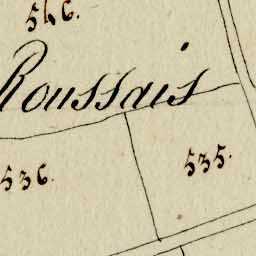 546.
Roussais
536.
535.